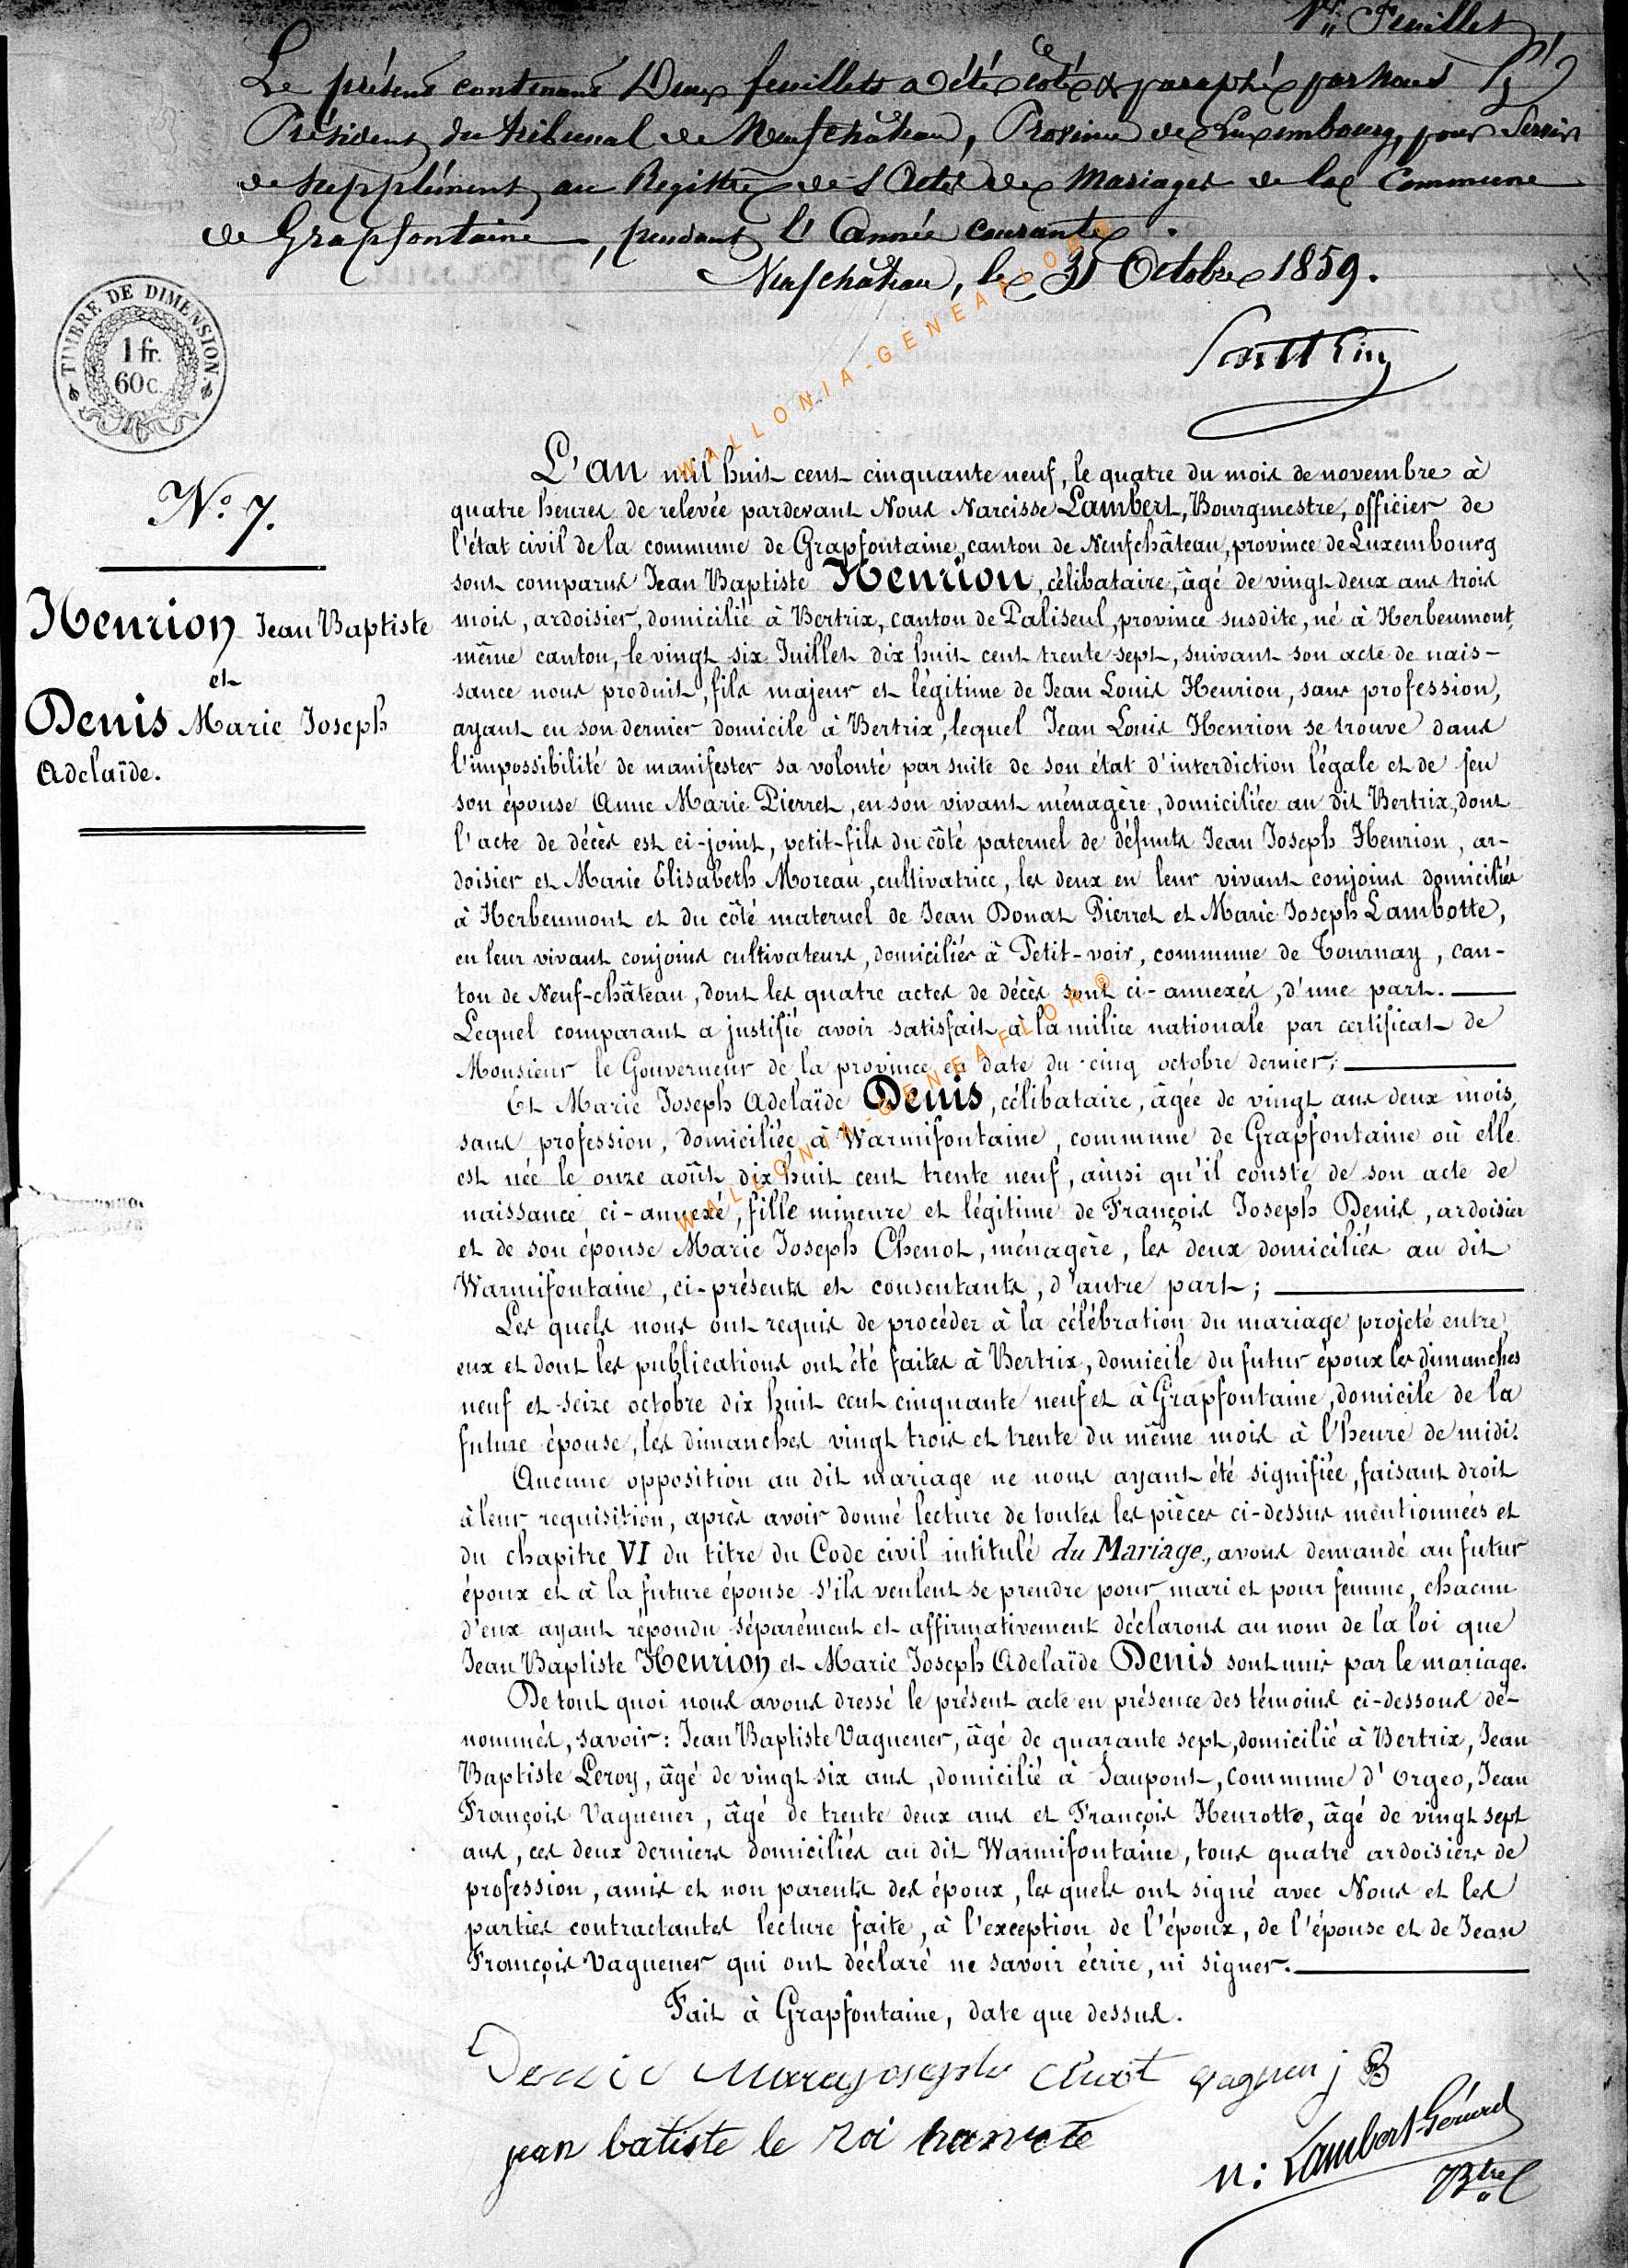 1er Feuillet
Le présent contenant Deux feuillets a été coté & paraphé par Nous
Président du tribunal de Neufchâteau, Province de Luxembourg, pour Servir
de supplément au Registre des Actes de Mariages de la Commune
de Grapfontaine, pendant l'Année courante.
Neufchâteau, le 31 Octobre 1859.
TIMBRE DE DIMENSION
1 fr.
60 c.
N.º 7.
Henrion Jean Baptiste
et
Denis Marie Joseph
Adelaïde.
L'an mil huit cent cinquante neuf, le quatre du mois de novembre à
quatre heures de relevée pardevant Nous Narcisse Lambert, Bourgmestre, officier de
l'état civil de la commune de Grapfontaine, canton de Neufchâteau, province de Luxembourg
sont comparus Jean Baptiste Henrion, célibataire, âgé de vingt deux ans trois
mois, ardoisier, domicilié à Bertrix, canton de Paliseul, province susdite, né à Herbeumont,
même canton, le vingt six Juillet dix huit cent trente sept, suivant son acte de nais-
sance nous produit, fils majeur et légitime de Jean Louis Henrion, sans profession,
ayant eu son dernier domicile à Bertrix, lequel Jean Louis Henrion se trouve dans
l'impossibilité de manifester sa volonté par suite de son état d'interdiction légale et de feu
son épouse Anne Marie Pierret, en son vivant ménagère, domiciliée au dit Bertrix, dont
l'acte de décès est ci-joint, petit-fils du côté paternel de défunts Jean Joseph Henrion, ar-
doisier et Marie Elisabeth Moreau, cultivatrice, les deux en leur vivant conjoins domiciliés
à Herbeumont et du côté maternel de Jean Donat Pierret et Marie Joseph Lambotte,
en leur vivant conjoins cultivateurs, domiciliés à Petit-voir, commune de Tournay, can-
ton de Neuf-château, dont les quatre actes de décès sont ci-annexés, d'une part.
Lequel comparant a justifié avoir satisfait à la milice nationale par certificat de
Monsieur le Gouverneur de la province en date du cinq octobre dernier;
Et Marie Joseph Adelaïde Denis, célibataire, âgée de vingt ans deux mois,
sans profession, domiciliée à Warmifontaine, commune de Grapfontaine où elle
est née le onze août dix huit cent trente neuf, ainsi qu'il conste de son acte de
naissance ci-annexé, fille mineure et légitime de François Joseph Denis, ardoisier
et de son épouse Marie Joseph Chenot, ménagère, les deux domiciliés au dit
Warmifontaine, ci-présents et consentants, d'autre part;
Les quels nous ont requis de procéder à la célébration du mariage projeté entre
eux et dont les publications ont été faites à Bertrix, domicile du futur époux les dimanches
neuf et seize octobre dix huit cent cinquante neuf et à Grapfontaine, domicile de la
future épouse, les dimanches vingt trois et trente du même mois à l'heure de midi.
Aucune opposition au dit mariage ne nous ayant été signifiée, faisant droit
à leur requisition, après avoir donné lecture de toutes les pièces ci-dessus mentionnées et
du chapitre VI du titre du Code civil intitulé du Mariage, avons demandé au futur
époux et à la future épouse s'ils veulent se prendre pour mari et pour femme, chacun
d'eux ayant répondu séparément et affirmativement déclarons au nom de la loi que
Jean Baptiste Henrion et Marie Joseph Adelaïde Denis sont unis par le mariage.
De tout quoi nous avons dressé le présent acte en présence des témoins ci-dessous dé-
nommés, savoir: Jean Baptiste Vaguener, âgé de quarante sept, domicilié à Bertrix, Jean
Baptiste Leroy, âgé de vingt six ans, domicilié à Saupont, commune d'Orgeo, Jean
François Vaguener, âgé de trente deux ans et François Henrotte, âgé de vingt sept
ans, ces deux derniers domiciliés au dit Warmifontaine, tous quatre ardoisiers de
profession, amis et non parents des époux, les quels ont signé avec Nous et les
parties contractantes lecture faite, à l'exception de l'époux, de l'épouse et de Jean
François Vaguener qui ont déclaré ne savoir écrire, ni signer.
Fait à Grapfontaine, date que dessus.
Denis vaguen j B
jean batiste le Roi
n: Lambert-Gérard
Btre
WALLONIA-GENEAFLOR®
WALLONIA-GENEAFLOR®